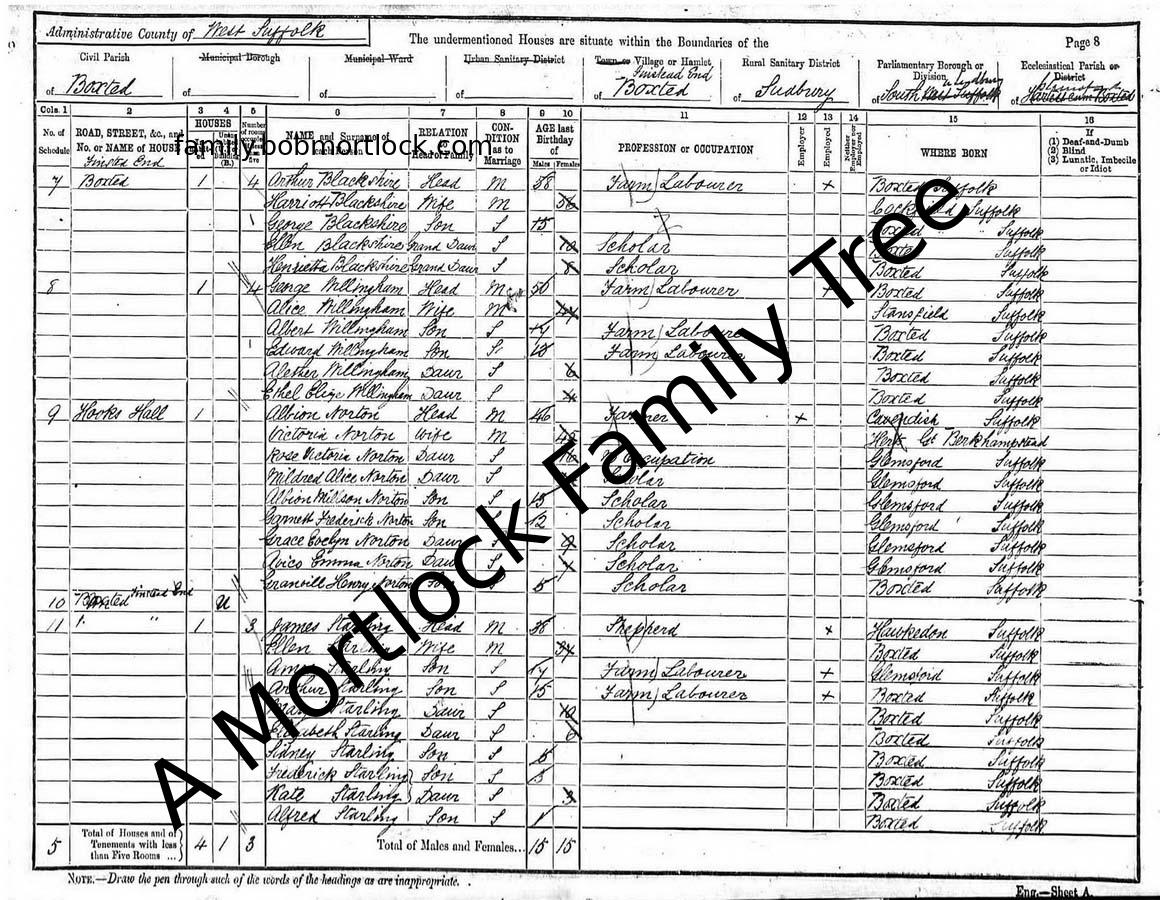 Administrative County of West Suffolk
The undermentioned Houses are situate within the Boundaries of the
Page 8
Civil Parish of Boxted
Municipal Borough of
Municipal Ward of
Urban Sanitary District of
Town or Village or Hamlet of Finstead End Boxted
Rural Sanitary District of Sudbury
Parliamentary Borough or Division of South
Ecclesiastical Parish or District of
Cols. 1 2 3 4 5 6 7 8 9 10 11 12 13 14 15 16
No. of Schedule
ROAD, STREET, &c., and No. or NAME of HOUSE
HOUSES
NAME and Surname of each Person
RELATION to Head of Family
CONDITION as to Marriage
AGE last Birthday of
Males Females
PROFESSION or OCCUPATION
Employer
Employed
Neither Employer nor Employed
WHERE BORN
If (1) Deaf-and-Dumb (2) Blind (3) Lunatic, Imbecile or Idiot
family.bobmortlock.com
Finsted End
7 Boxted 1 4 Arthur Blackshire Head M 58 Farm Labourer + Boxted Suffolk
Harriott Blackshire Wife M 56 Suffolk
George Blackshire Son S 15 Boxted Suffolk
Ellen Blackshire Grand Daur S 10 Scholar Boxted Suffolk
Henrietta Blackshire Grand Daur S 8 Scholar Boxted Suffolk
8 1 4 George Willingham Head M 50 Farm Labourer + Boxted Suffolk
Alice Willingham Wife M 44 Stansfield Suffolk
Albert Willingham Son S Farm Labourer Boxted Suffolk
Edward Willingham Son S Farm Labourer Boxted Suffolk
Willingham Daur S 6 Boxted Suffolk
Ethel Eliza Willingham Daur S 4 Boxted Suffolk
9 Hooks Hall 1 Albion Norton Head M 46 Farmer + Cavendish Suffolk
Victoria Norton Wife M Herts Gt Berkhampstead
Rose Victoria Norton Daur S 16 No Occupation Glemsford Suffolk
Mildred Alice Norton Daur S Scholar Glemsford Suffolk
Albion Willson Norton Son S 13 Scholar Glemsford Suffolk
Garnett Frederick Norton Son S 12 Scholar Glemsford Suffolk
Grace Evelyn Norton Daur S 9 Scholar Glemsford Suffolk
Avice Emma Norton Daur S Scholar Glemsford Suffolk
Granvill Henry Norton Son S 5 Scholar Boxted Suffolk
10 Boxted Finsted End U
11 " " 1 3 James Starling Head M 38 Shepherd + Hawkedon Suffolk
Ellen Starling Wife M 34 Boxted Suffolk
Starling Son S 17 Farm Labourer + Glemsford Suffolk
Arthur Starling Son S 15 Farm Labourer + Boxted Suffolk
Mary Starling Daur S 10 Boxted Suffolk
Elizabeth Starling Daur S 6 Boxted Suffolk
Sidney Starling Son S Boxted Suffolk
Frederick Starling Son S 3 Boxted Suffolk
Kate Starling Daur S 3 Boxted Suffolk
Alfred Starling Son S 1 Boxted Suffolk
5 Total of Houses and of Tenements with less than Five Rooms ... 4 1 3 Total of Males and Females... 15 15
NOTE.—Draw the pen through such of the words of the headings as are inappropriate.
Eng.—Sheet A.
A Mortlock Family Tree